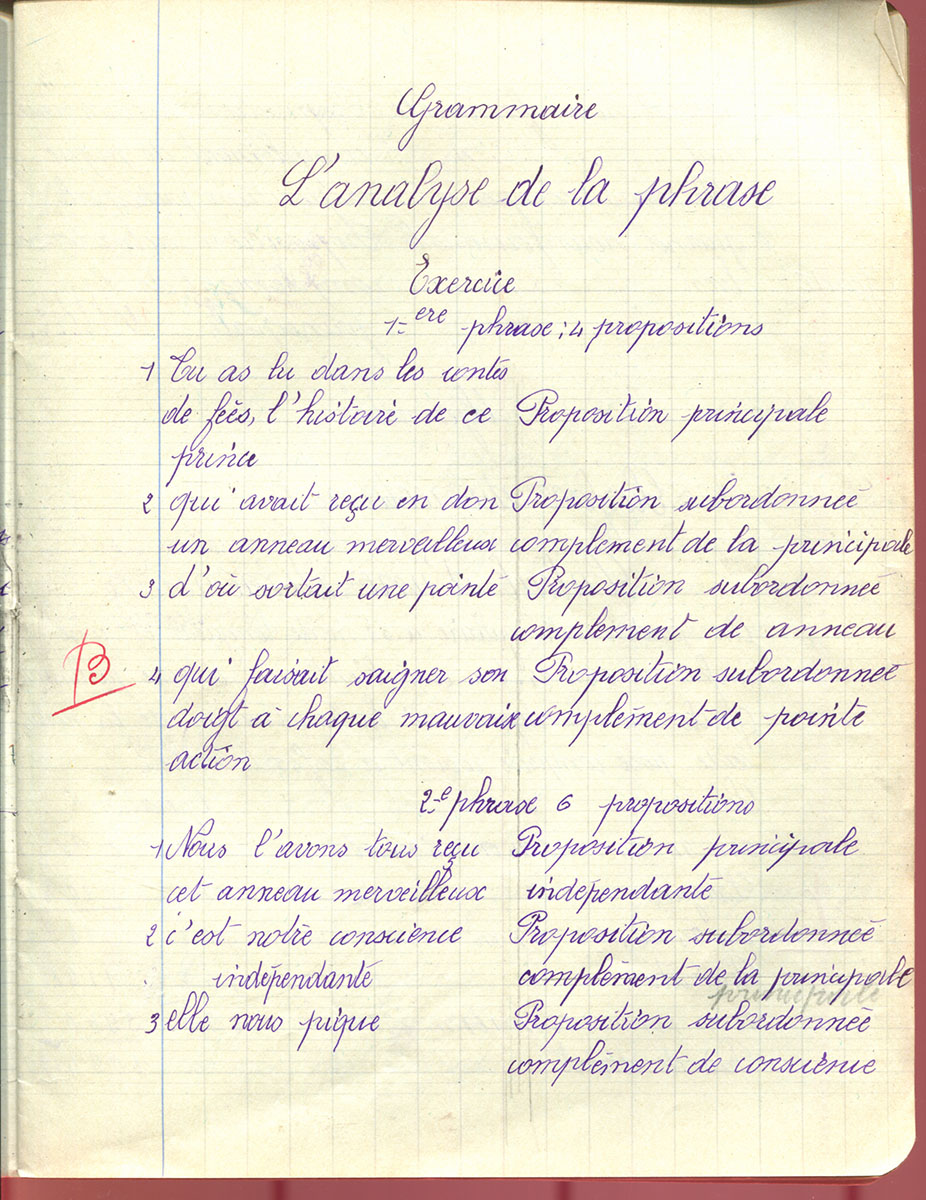 Grammaire
L'analyse de la phrase
Exercice
1-ere phrase : 4 propositions
1 Tu as lu dans les contes
de feés, l'histoire de ce Proposition principale
prince
2 qui avait reçu en don Proposition subordonneé
un anneau merveilleux complement de la principale
3 d'où sortait une pointe Proposition subordonneé
complement de anneau
B
4 qui faisait saigner son Proposition subordonneé
doigt à chaque mauvaix complément de pointe
action
2-e phrase 6 propositions
1 Nous l'avons tous reçu Proposition principale
cet anneau merveilleux indépendante
2 c'est notre conscience Proposition subordonneé
indépendante complément de la principale
principale
3 elle nous pique Proposition subordonneé
complément de conscience